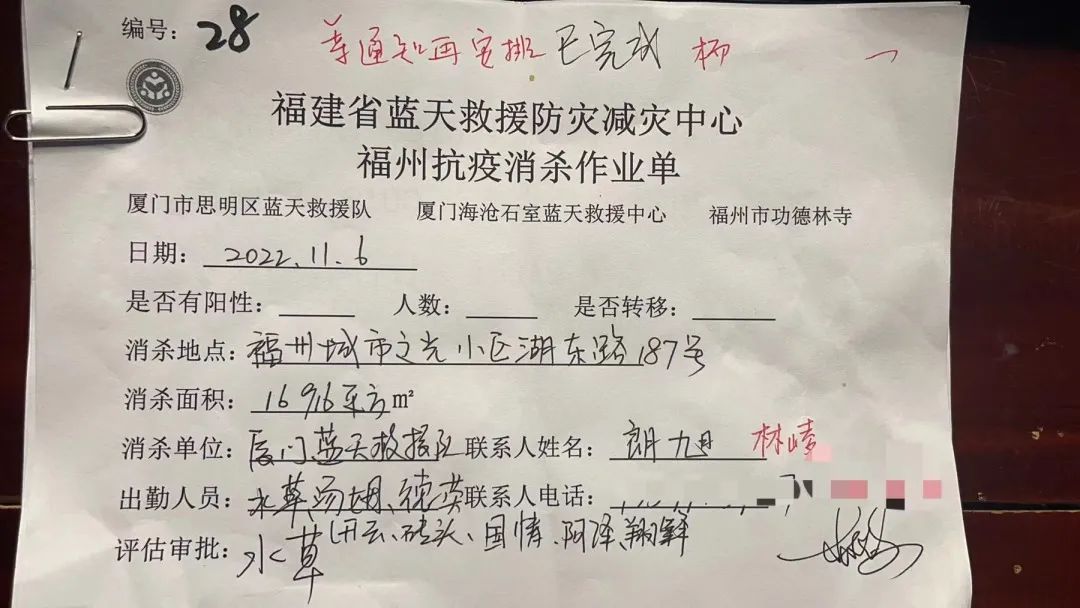 编号: 28
等通知再安排 已完成 杨
福建省蓝天救援防灾减灾中心
福州抗疫消杀作业单
厦门市思明区蓝天救援队 厦门海沧石室蓝天救援中心 福州市功德林寺
日期: 2022.11.6
是否有阳性: 人数: 是否转移:
消杀地点: 福州城市之光小区湖东路187号
消杀面积: 16916平方㎡
消杀单位: 厦门蓝天救援队 联系人姓名: 郎旭 林
出勤人员: 水草 德英 联系人电话:
砖头、国情、阿泽、翔鲜
评估审批: 水草